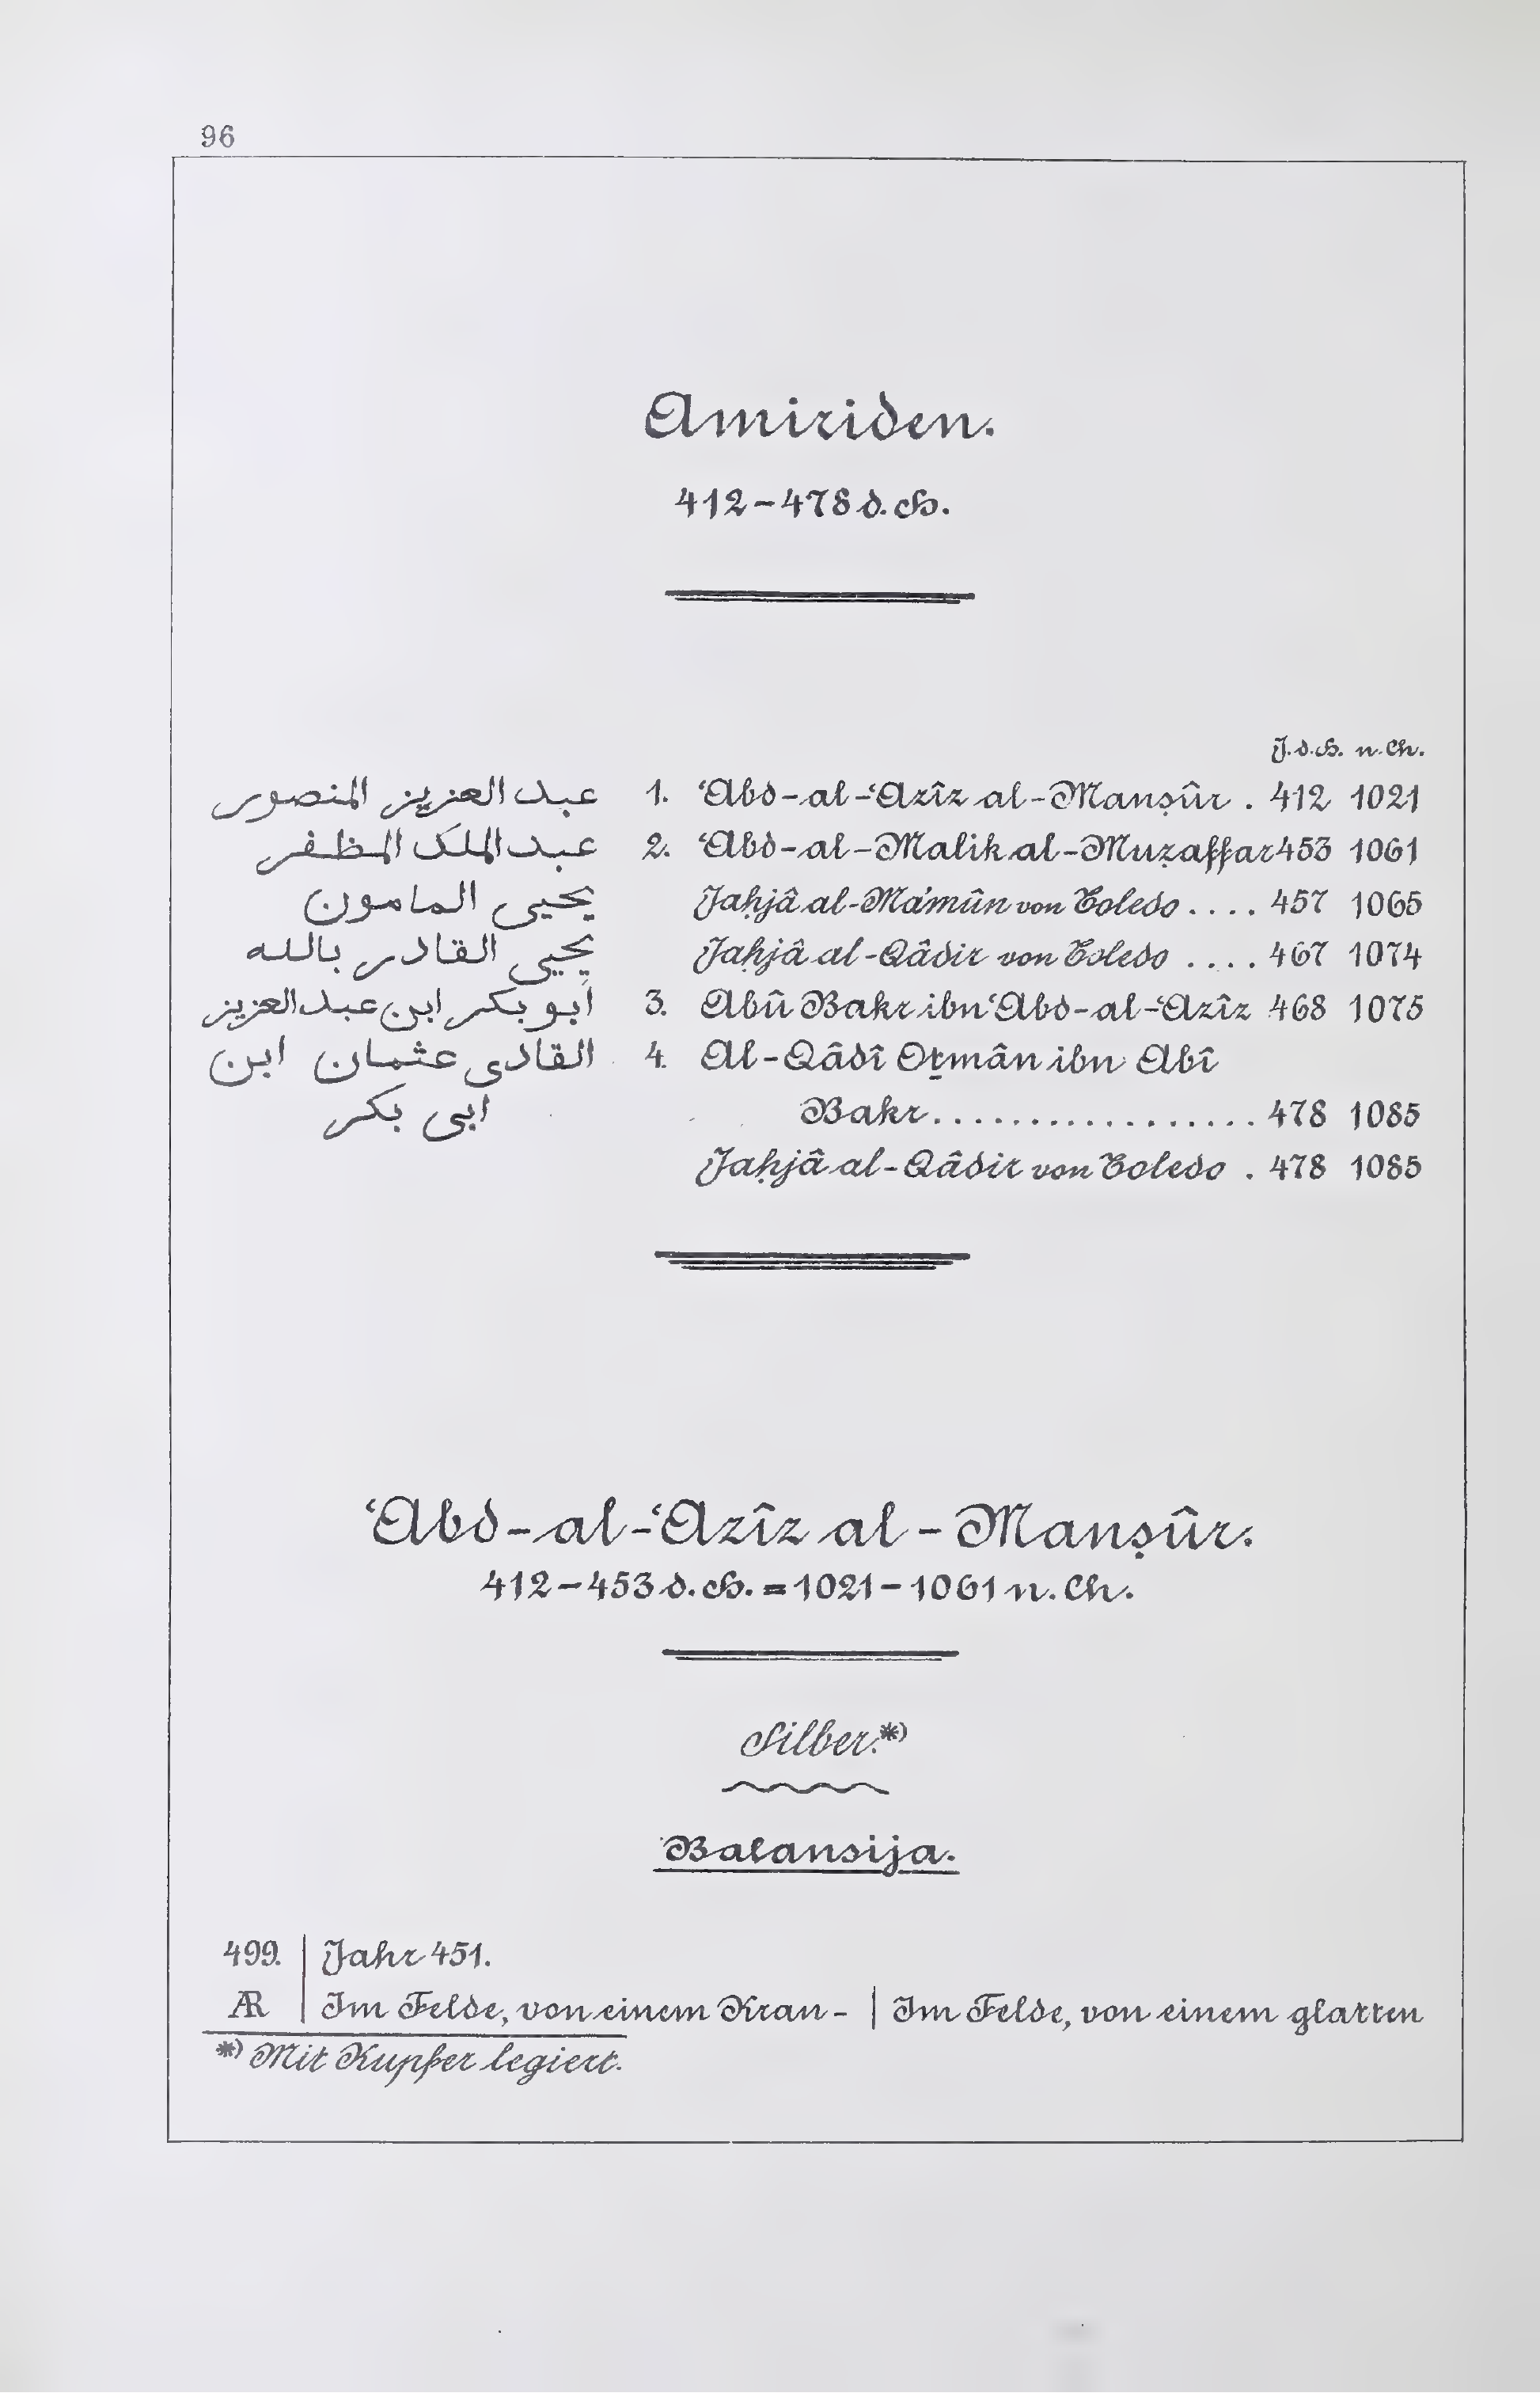 96
Amiriden.
412–478 d. H.
J. d. H. n. Ch.
عبد العزيز المنصور 1. ‘Abd-al-‘Azîz al-Manṣûr . 412 1021
عبد الملك المظفر 2. ‘Abd-al-Malik al-Muẓaffar 453 1061
يحيى المامون Jaḥjâ al-Ma’mûn von Toledo .... 457 1065
يحيى القادر بالله Jaḥjâ al-Qâdir von Toledo .... 467 1074
أبو بكر ابن عبد العزيز 3. Abû Bakr ibn ‘Abd-al-‘Azîz 468 1075
القادى عثمان ابن 4. Al-Qâdî Oṯmân ibn Abî
ابى بكر Bakr .................. 478 1085
Jaḥjâ al-Qâdir von Toledo . 478 1085
‘Abd-al-‘Azîz al-Manṣûr.
412–453 d. H. = 1021–1061 n. Ch.
Silber.*)
Balansija.
499. Jahr 451.
Æ Im Felde, von einem Kran- | Im Felde, von einem glatten
*) Mit Kupfer legiert.